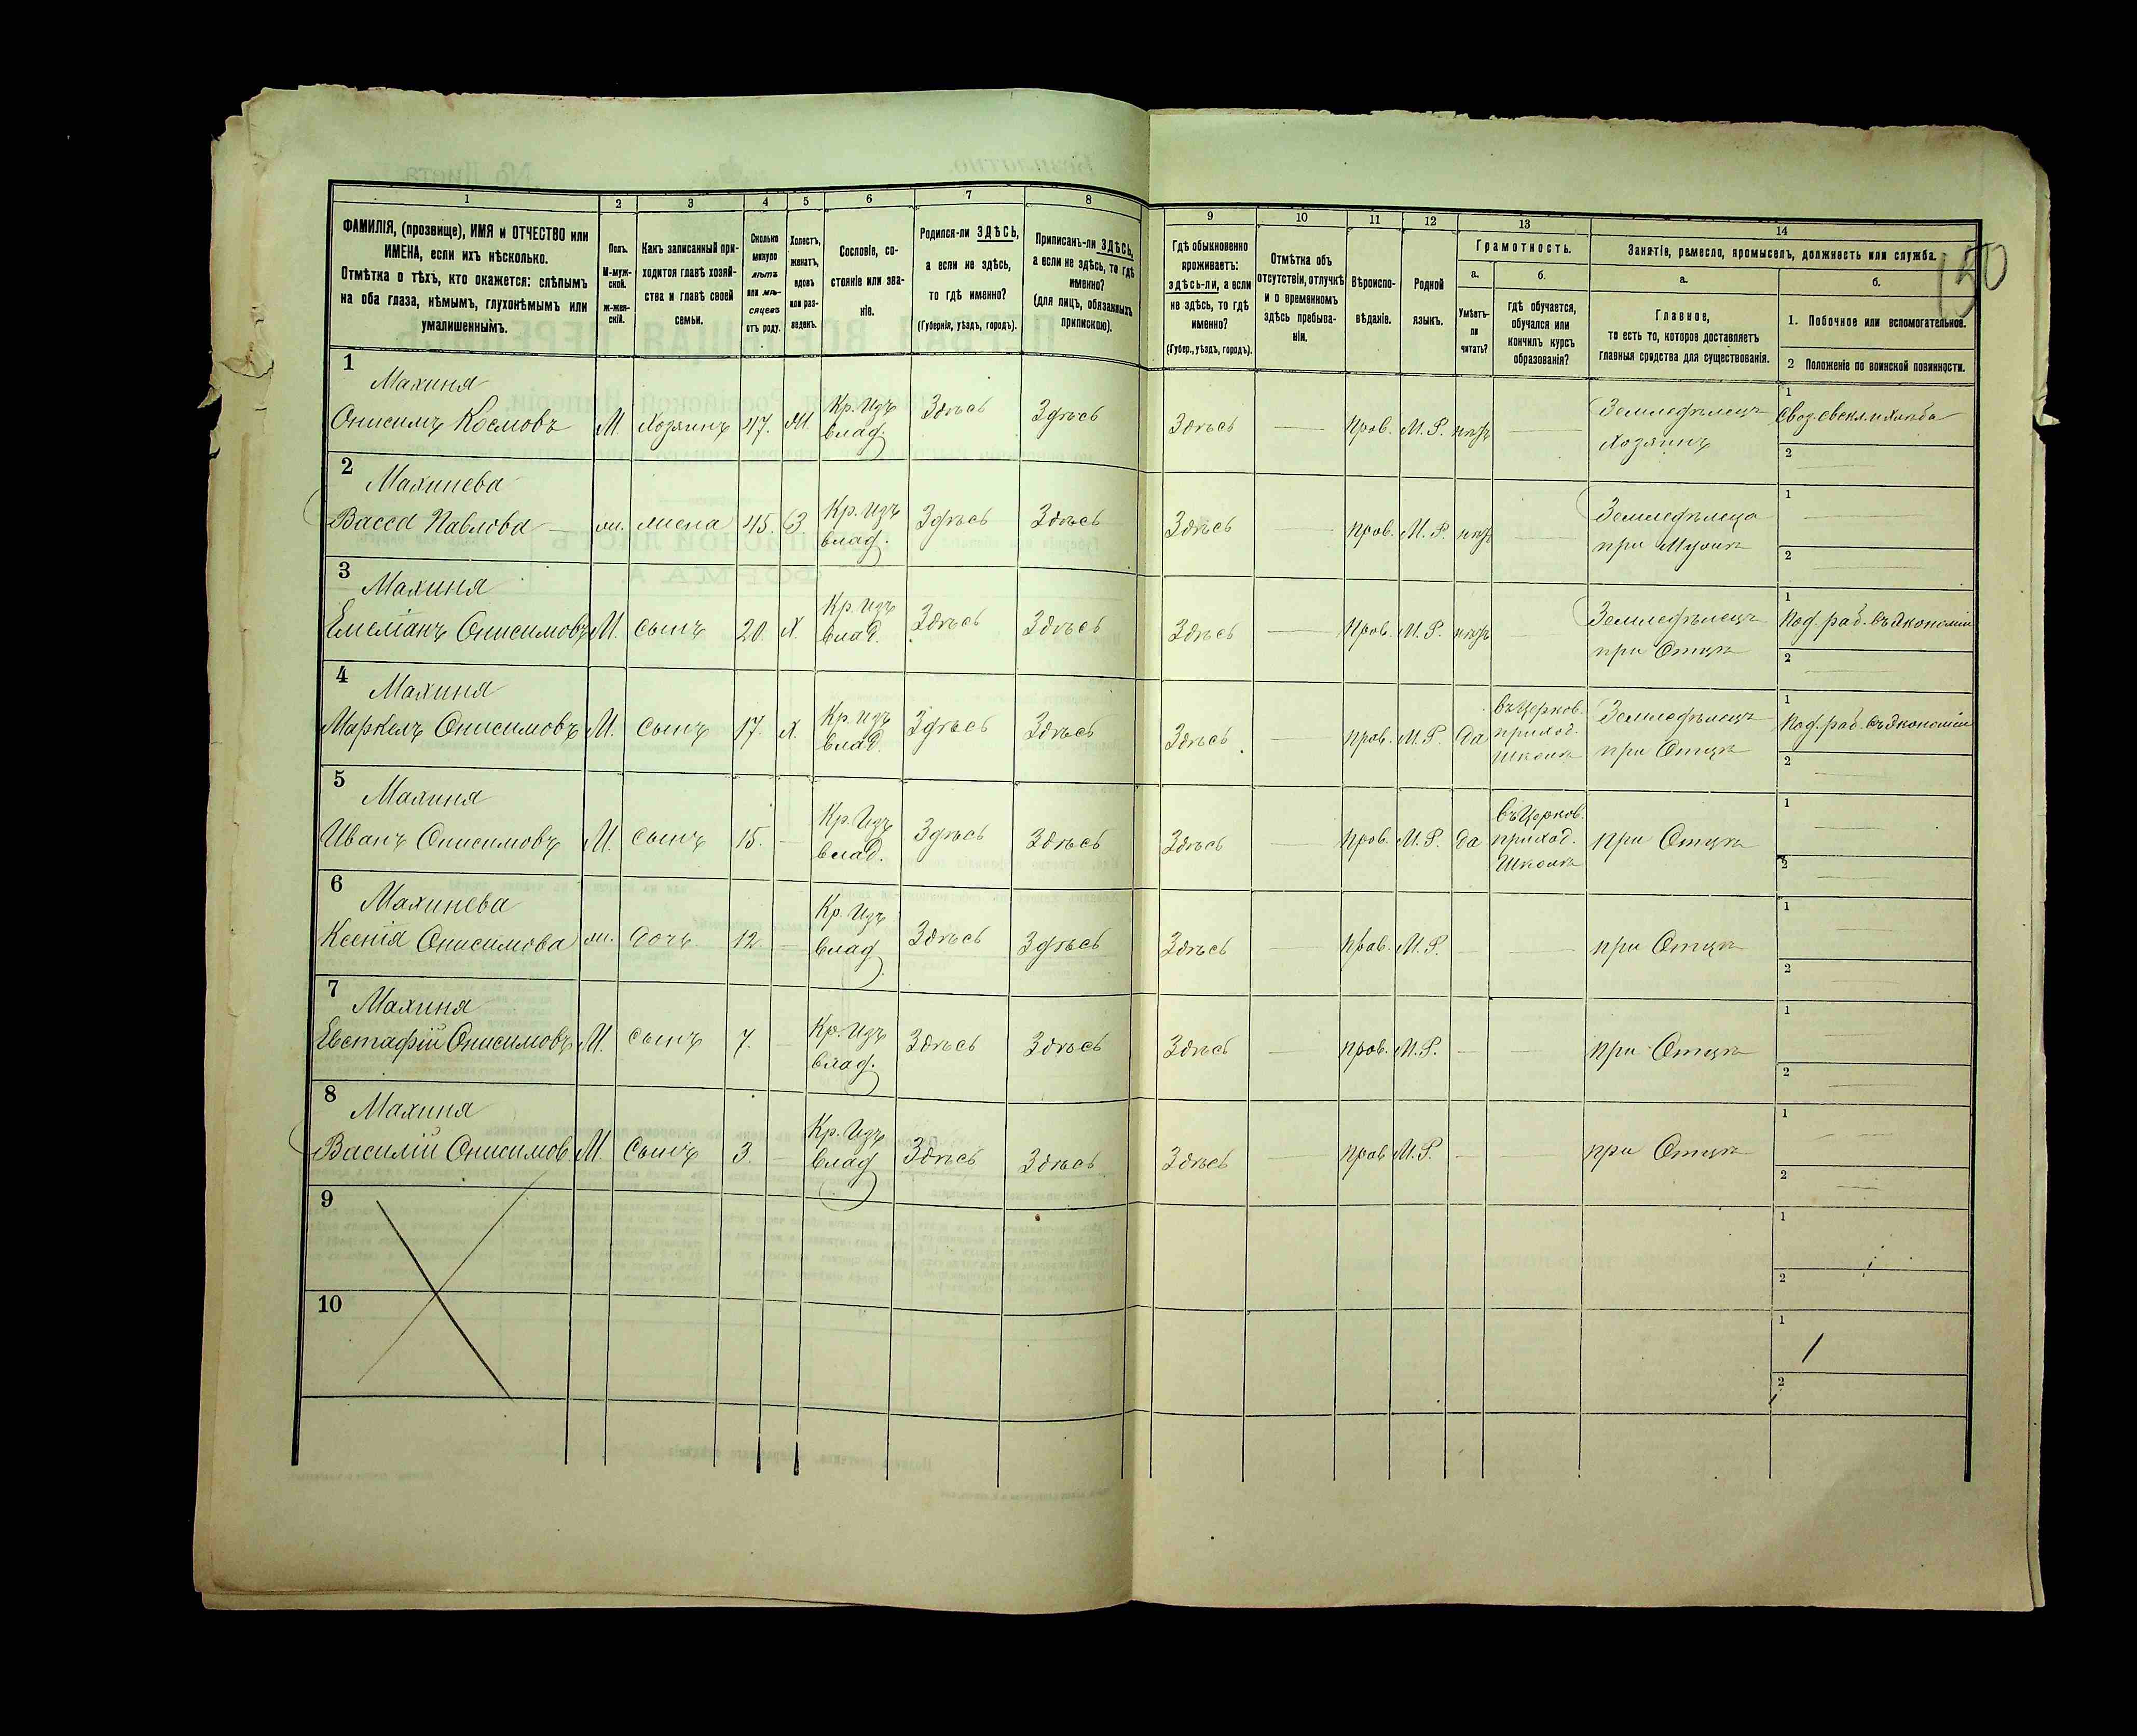 150
1 2 3 4 5 6 7 8 9 10 11 12 13 14
ФАМИЛІЯ, (прозвище), ИМЯ и ОТЧЕСТВО или
ИМЕНА, если ихъ нѣсколько.
Отмѣтка о тѣхъ, кто окажется: слѣпымъ
на оба глаза, нѣмымъ, глухонѣмымъ или
умалишеннымъ.
Полъ.
М-муж-
ской.
ж-жен-
скій.
Какъ записанный при-
ходится главѣ хозяй-
ства и главѣ своей
семьи.
Сколько
минуло
лѣтъ
или мѣ-
сяцевъ
отъ роду.
Холостъ,
женатъ,
вдовъ
или раз-
веденъ.
Сословіе, со-
стояніе или зва-
ніе.
Родился-ли ЗДѢСЬ,
а если не здѣсь,
то гдѣ именно?
(Губернія, уѣздъ, городъ).
Приписанъ-ли ЗДѢСЬ,
а если не здѣсь, то гдѣ
именно?
(для лицъ, обязанныхъ
припискою).
Гдѣ обыкновенно
проживаетъ:
здѣсь-ли, а если
не здѣсь, то гдѣ
именно?
(Губер., уѣздъ, городъ).
Отмѣтка объ
отсутствіи, отлучкѣ
и о временномъ
здѣсь пребыва-
ніи.
Вѣроиспо-
вѣданіе.
Родной
языкъ.
Грамотность.
а. б.
Умѣетъ-
ли
читать?
гдѣ обучается,
обучался или
кончилъ курсъ
образованія?
Занятіе, ремесло, промыселъ, должность или служба.
а. б.
Главное,
то есть то, которое доставляетъ
главныя средства для существованія.
1. Побочное или вспомогательное.
2 Положеніе по воинской повинности.
1 Махиня Кр. изъ Здѣсь Земледѣлецъ 1
Онисимъ Космовъ М. Хозяинъ 47. Ж. влад. Здѣсь Здѣсь — Прав. М. Р. нѣтъ — Хозяинъ 2 —
2 Махинева Кр. изъ Земледѣлица 1 —
Васса Павлова — ж. жена 45. З. влад. Здѣсь Здѣсь Здѣсь — Прав. М. Р. нѣтъ — при Мужѣ 2 —
3 Махиня Кр. изъ Земледѣлецъ 1 Под. раб. въ Экономіи
Емеліанъ Онисимовъ М. сынъ 20. Х. влад. Здѣсь Здѣсь Здѣсь — Прав. М. Р. нѣтъ при Отцѣ 2 —
4 Махиня Кр. изъ въ Церков. Земледѣлецъ 1 Под. раб. въ Экономіи
Маркелъ Онисимовъ М. сынъ 17. Х. влад. Здѣсь Здѣсь Здѣсь — Прав. М. Р. Да приход. при Отцѣ 2 —
Школѣ
5 Махиня Кр. изъ въ Церков. 1 —
Иванъ Онисимовъ М. сынъ 15. — влад. Здѣсь Здѣсь Здѣсь — Прав. М. Р. Да приход. при Отцѣ 2 —
Школѣ
6 Махинева Кр. изъ 1 —
Ксенія Онисимова ж. дочь 12. — влад. Здѣсь Здѣсь Здѣсь — Прав. М. Р. — — при Отцѣ 2 —
7 Махиня Кр. изъ 1 —
Евстафій Онисимовъ М. сынъ 7. — влад. Здѣсь Здѣсь Здѣсь — Прав. М. Р. — — при Отцѣ 2 —
8 Махиня Кр. изъ 1 —
Василій Онисимов. М. Сынъ 3. — влад. Здѣсь Здѣсь Здѣсь — Прав. М. Р. — — при Отцѣ 2 —
9 1
2
10 1
2